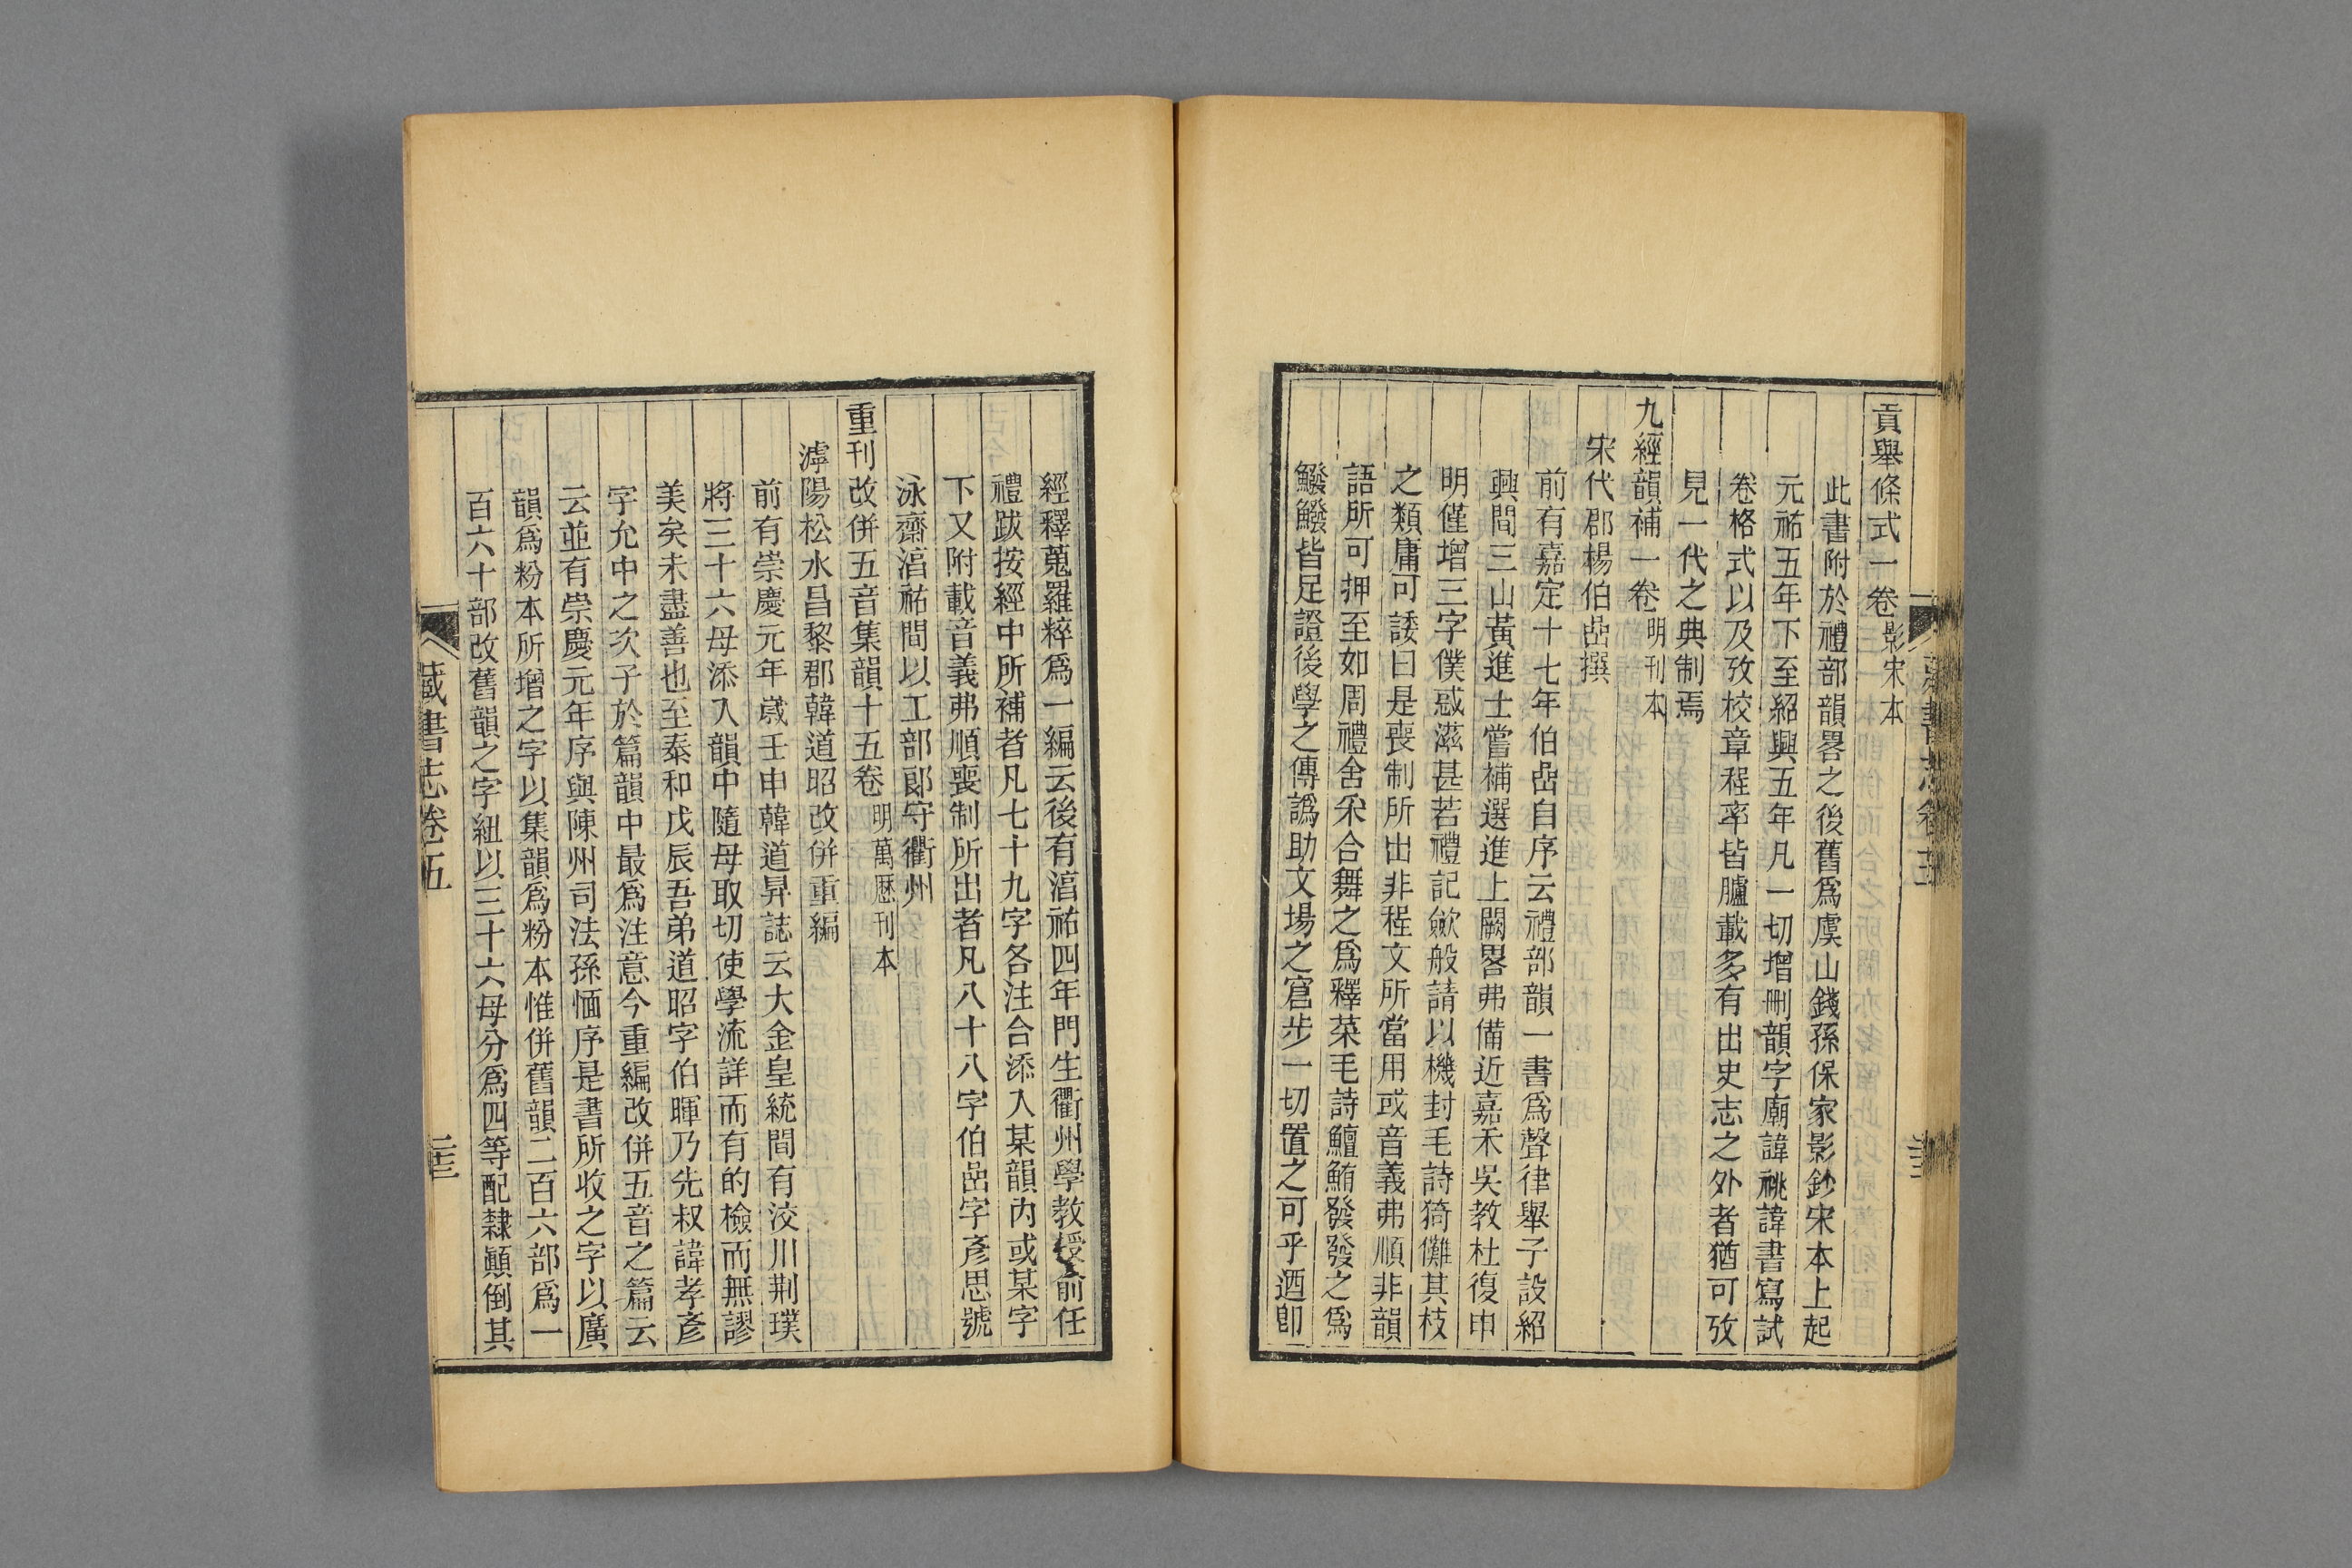 貢舉條式一卷影宋本
此書附於禮部韻畧之後舊爲虞山錢孫保家影鈔宋本上起
元祐五年下至紹興五年凡一切增刪韻字廟諱祧諱書寫試
卷格式以及攷校章程率皆臚載多有出史志之外者猶可攷
見一代之典制焉
九經韻補一卷明刊本
宋代郡楊伯嵒撰
前有嘉定十七年伯嵒自序云禮部韻一書爲聲律舉子設紹
興間三山黃進士嘗補選進上闕畧弗備近嘉禾吳教杜復申
明僅增三字僕惑滋甚若禮記歛般請以機封毛詩猗儺其枝
之類庸可諉曰是喪制所出非程文所當用或音義弗順非韻
語所可押至如周禮舍采合舞之爲釋菜毛詩鱣鮪發發之爲
鱍鱍皆足證後學之傳譌助文場之窘步一切置之可乎迺卽
經釋蒐羅粹爲一編云後有淳祐四年門生衢州學教授前任
禮跋按經中所補者凡七十九字各注合添入某韻內或某字
下又附載音義弗順喪制所出者凡八十八字伯嵒字彥思號
泳齋淳祐間以工部郎守衢州
重刊改併五音集韻十五卷明萬歷刊本
滹陽松水昌黎郡韓道昭改併重編
前有崇慶元年歲壬申韓道昇誌云大金皇統間有洨川荆璞
將三十六母添入韻中隨母取切使學流詳而有的檢而無謬
美矣未盡善也至泰和戊辰吾弟道昭字伯暉乃先叔諱孝彥
字允中之次子於篇韻中最爲注意今重編改併五音之篇云
云並有崇慶元年序與陳州司法孫愐序是書所收之字以廣
韻爲粉本所增之字以集韻爲粉本惟併舊韻二百六部爲一
百六十部改舊韻之字紐以三十六母分爲四等配隸顚倒其
藏書志卷五